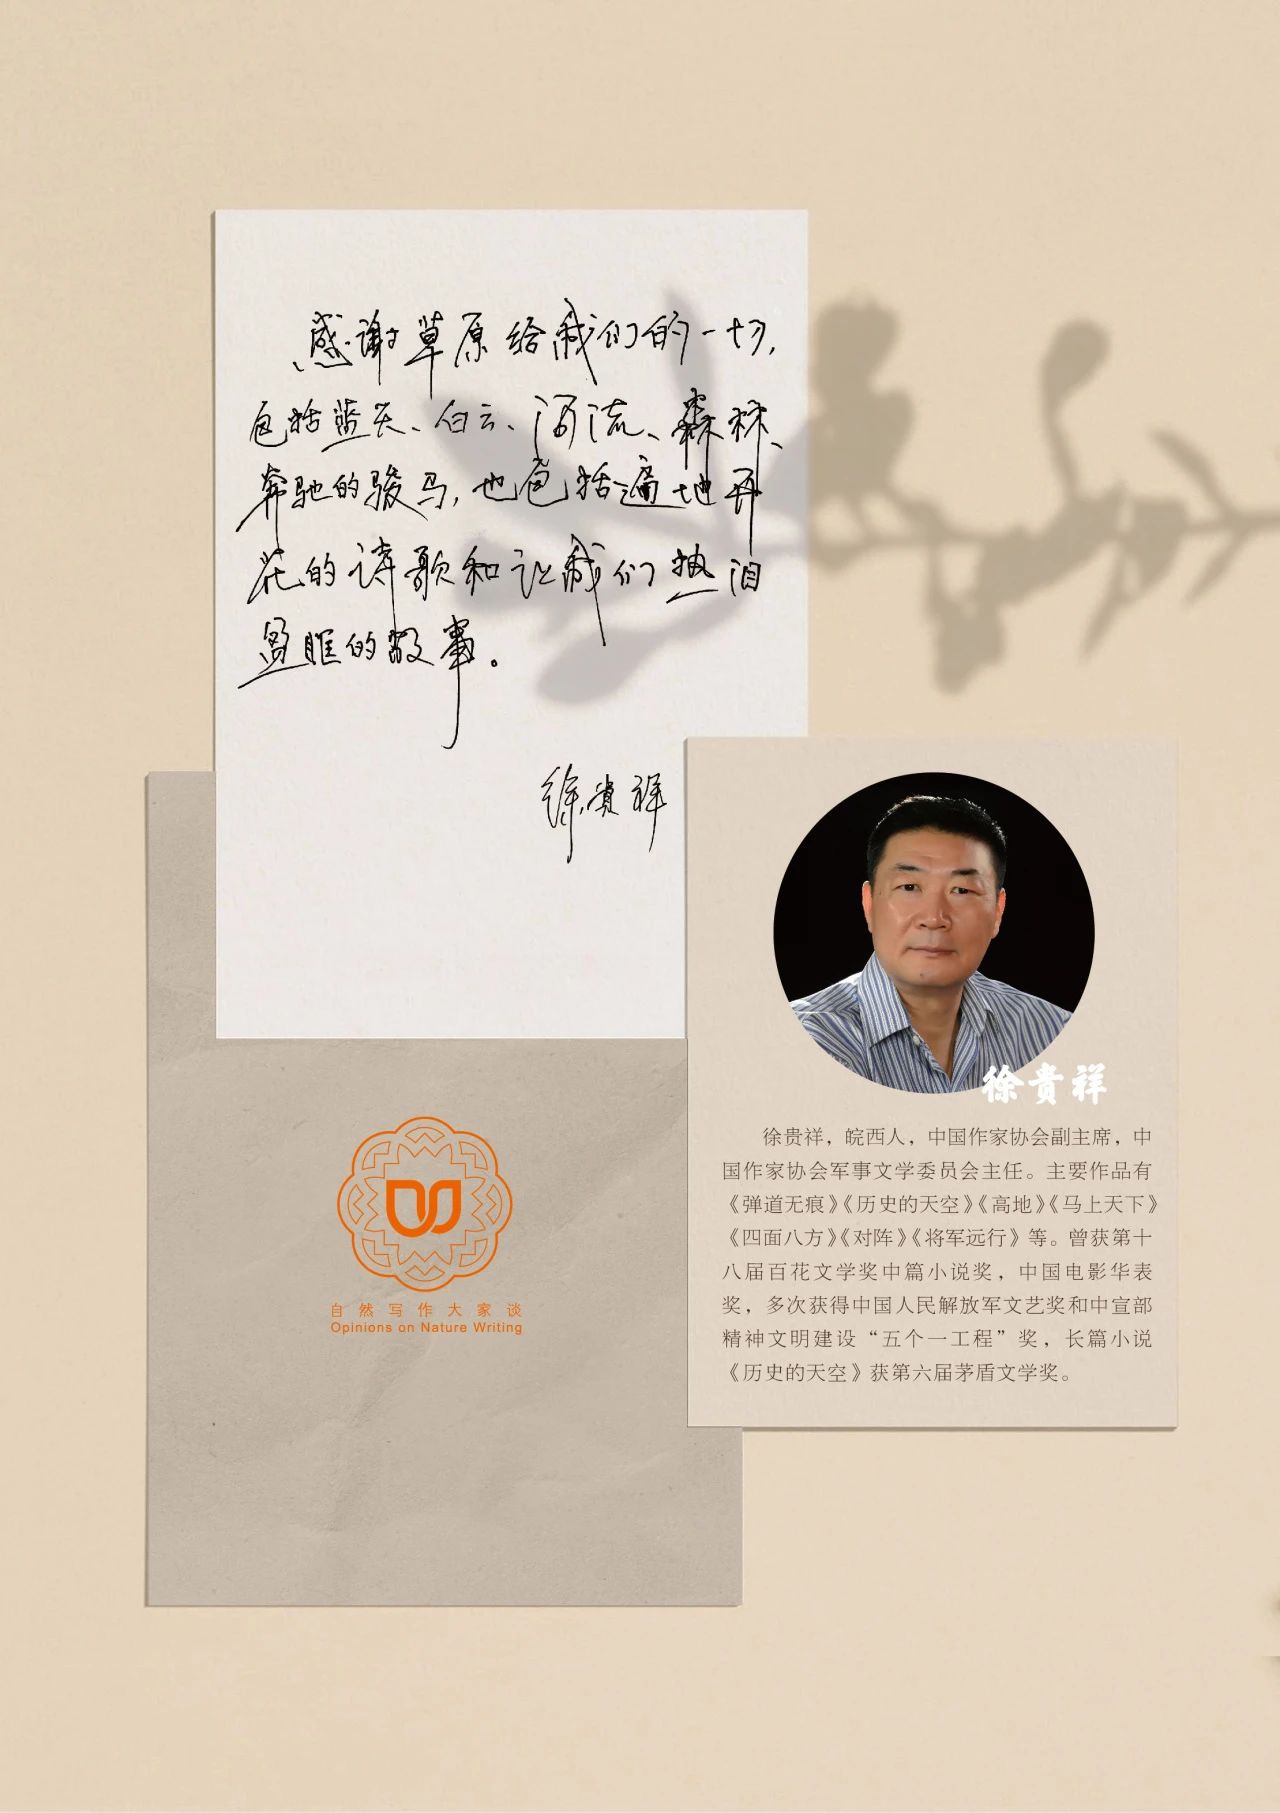 感谢草原给我们的一切，
包括蓝天、白云、河流、森林、
奔驰的骏马，也包括遍地开
花的诗歌和让我们热泪
盈眶的故事。
徐贵祥
徐贵祥
徐贵祥，皖西人，中国作家协会副主席，中
国作家协会军事文学委员会主任。主要作品有
《弹道无痕》《历史的天空》《高地》《马上天下》
《四面八方》《对阵》《将军远行》等。曾获第十
八届百花文学奖中篇小说奖，中国电影华表
奖，多次获得中国人民解放军文艺奖和中宣部
精神文明建设“五个一工程”奖，长篇小说
《历史的天空》获第六届茅盾文学奖。
自然写作大家谈
Opinions on Nature Writing